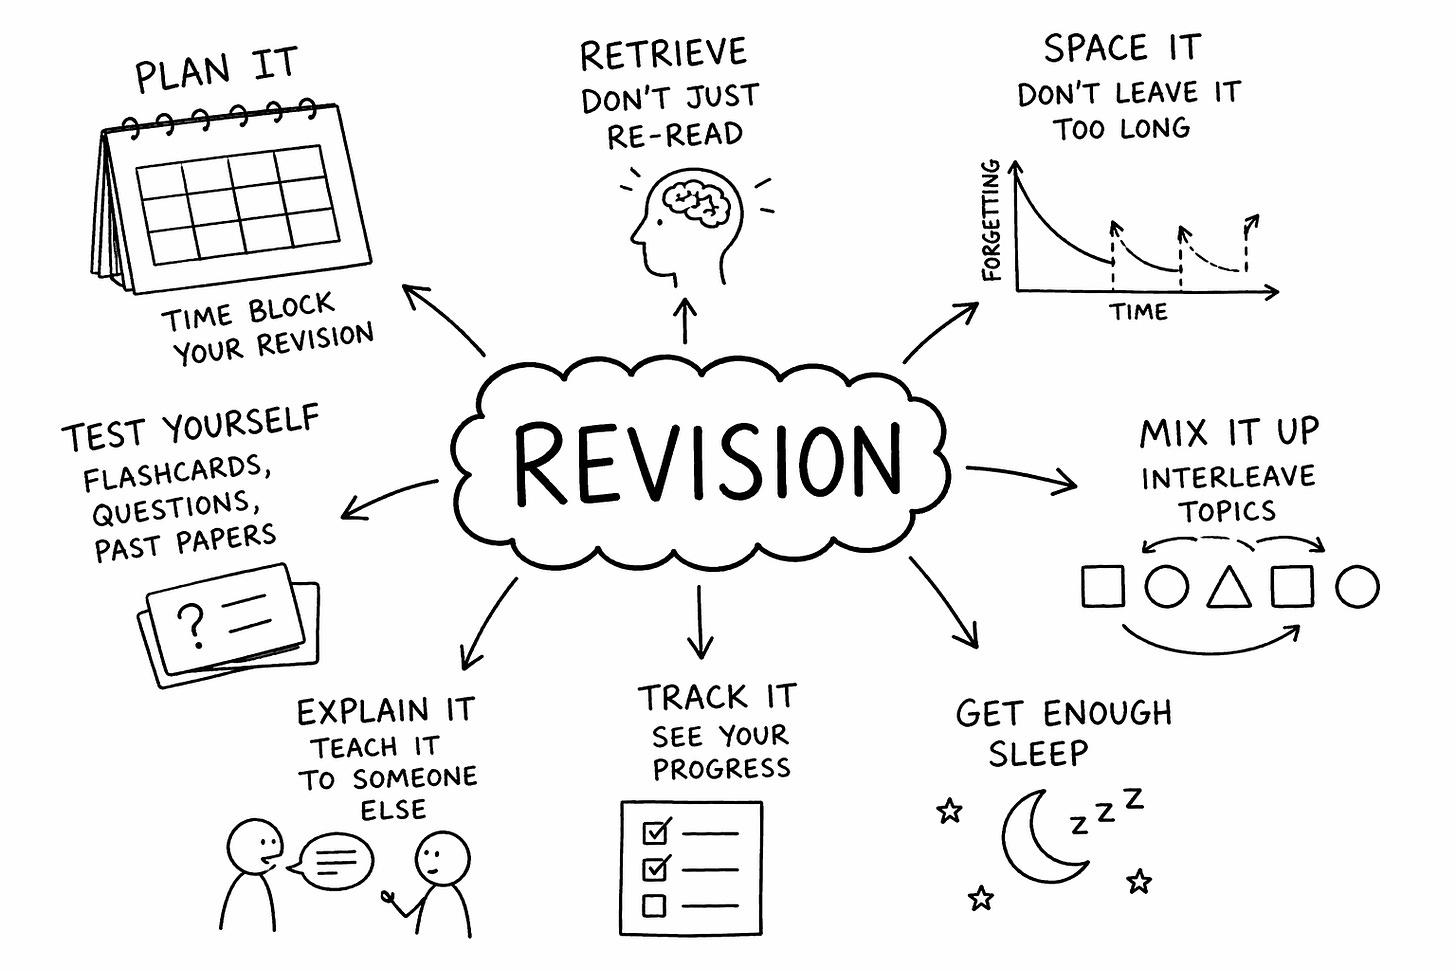 PLAN IT
TIME BLOCK
YOUR REVISION
RETRIEVE
DON'T JUST
RE-READ
SPACE IT
DON'T LEAVE IT
TOO LONG
FORGETTING
TIME
REVISION
TEST YOURSELF
FLASHCARDS,
QUESTIONS,
PAST PAPERS
?
MIX IT UP
INTERLEAVE
TOPICS
EXPLAIN IT
TEACH IT
TO SOMEONE
ELSE
TRACK IT
SEE YOUR
PROGRESS
GET ENOUGH
SLEEP
z z z